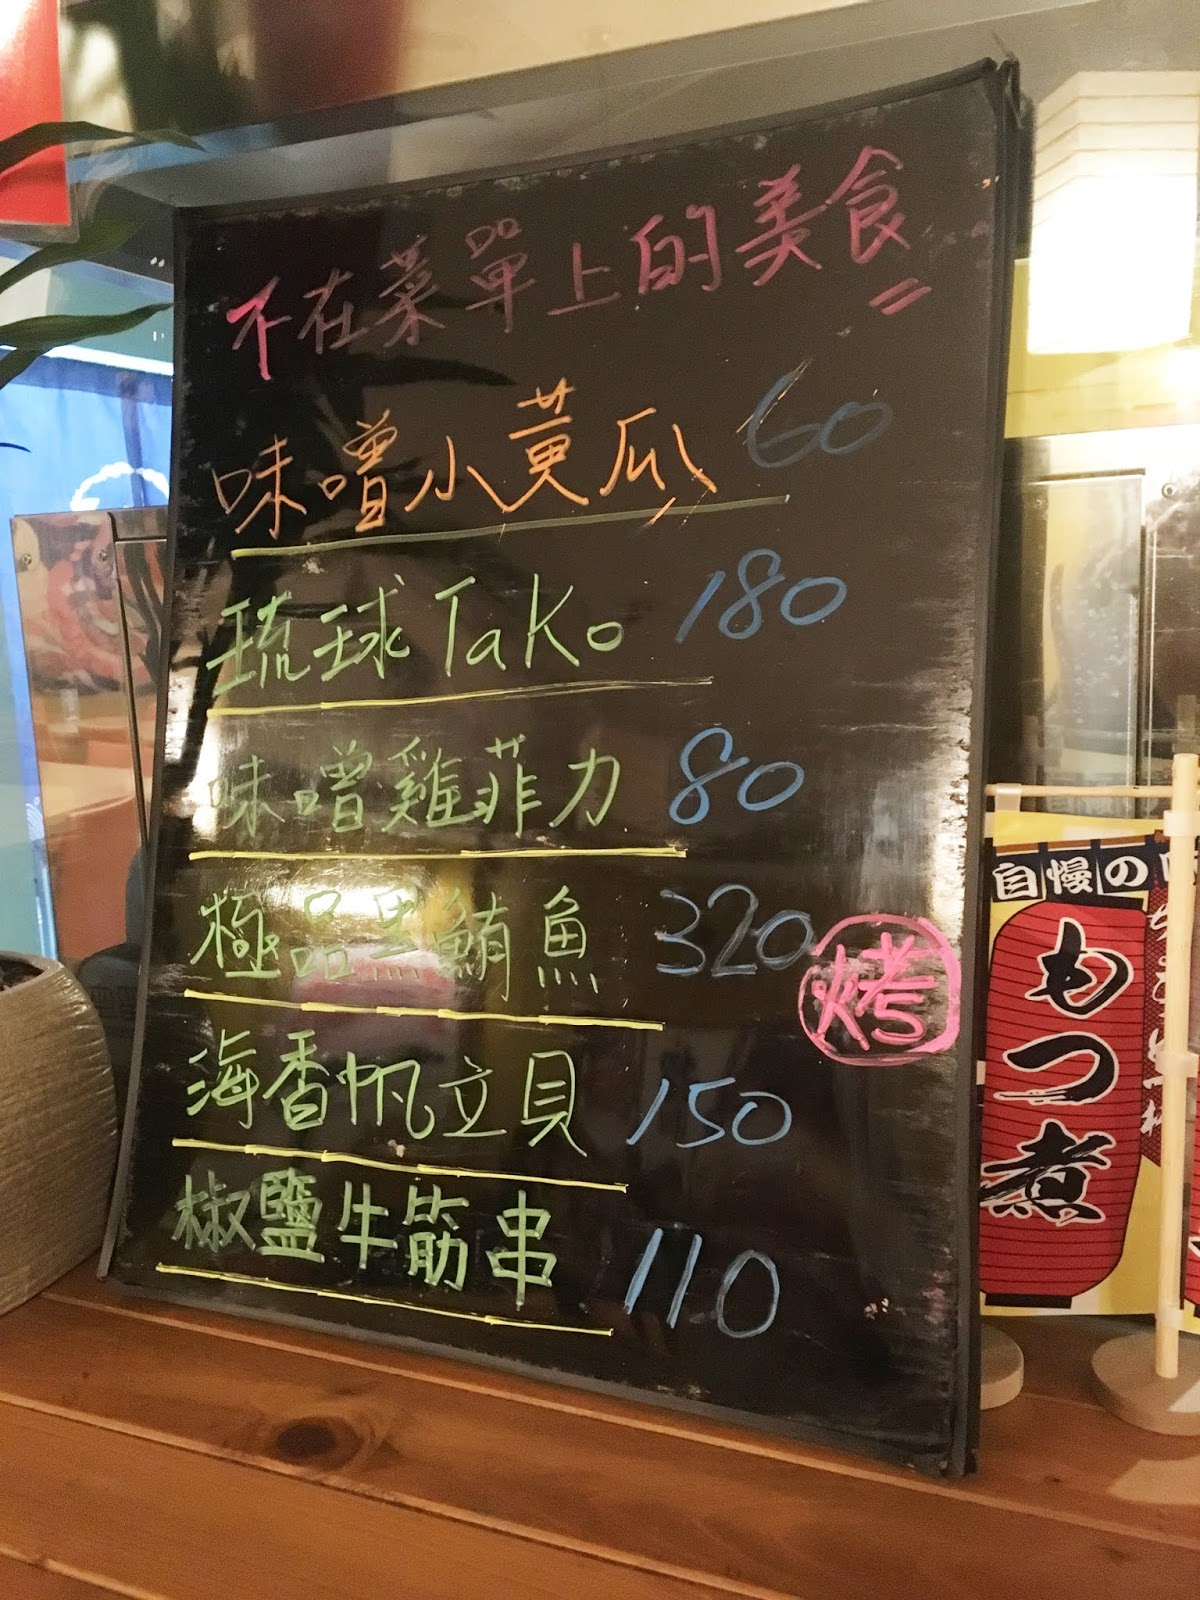 不在菜單上的美食
味噌小黃瓜 60
琉球Tako 180
味噌雞菲力 80
極品黑鮪魚 320 烤
海香帆立貝 150
椒鹽牛筋串 110
自慢の
もつ煮